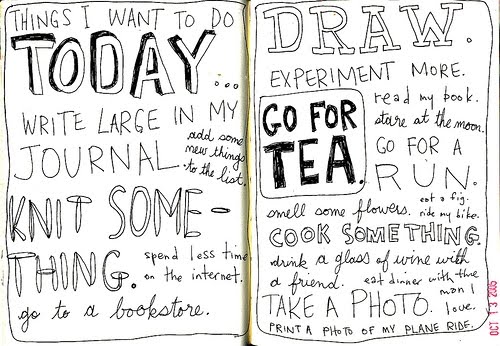 THINGS I WANT TO DO
TODAY...
WRITE LARGE IN MY
JOURNAL.
add some
new things
to the list.
KNIT SOME-
THING.
spend less time
on the internet.
go to a bookstore.
DRAW.
EXPERIMENT MORE.
GO FOR
TEA.
read my book.
stare at the moon.
GO FOR A
RUN.
eat a fig.
smell some flowers.
ride my bike.
COOK SOMETHING.
drink a glass of wine with
a friend.
eat dinner with the
man I
love.
TAKE A PHOTO.
PRINT A PHOTO OF MY PLANE RIDE.
OCT 13 2005